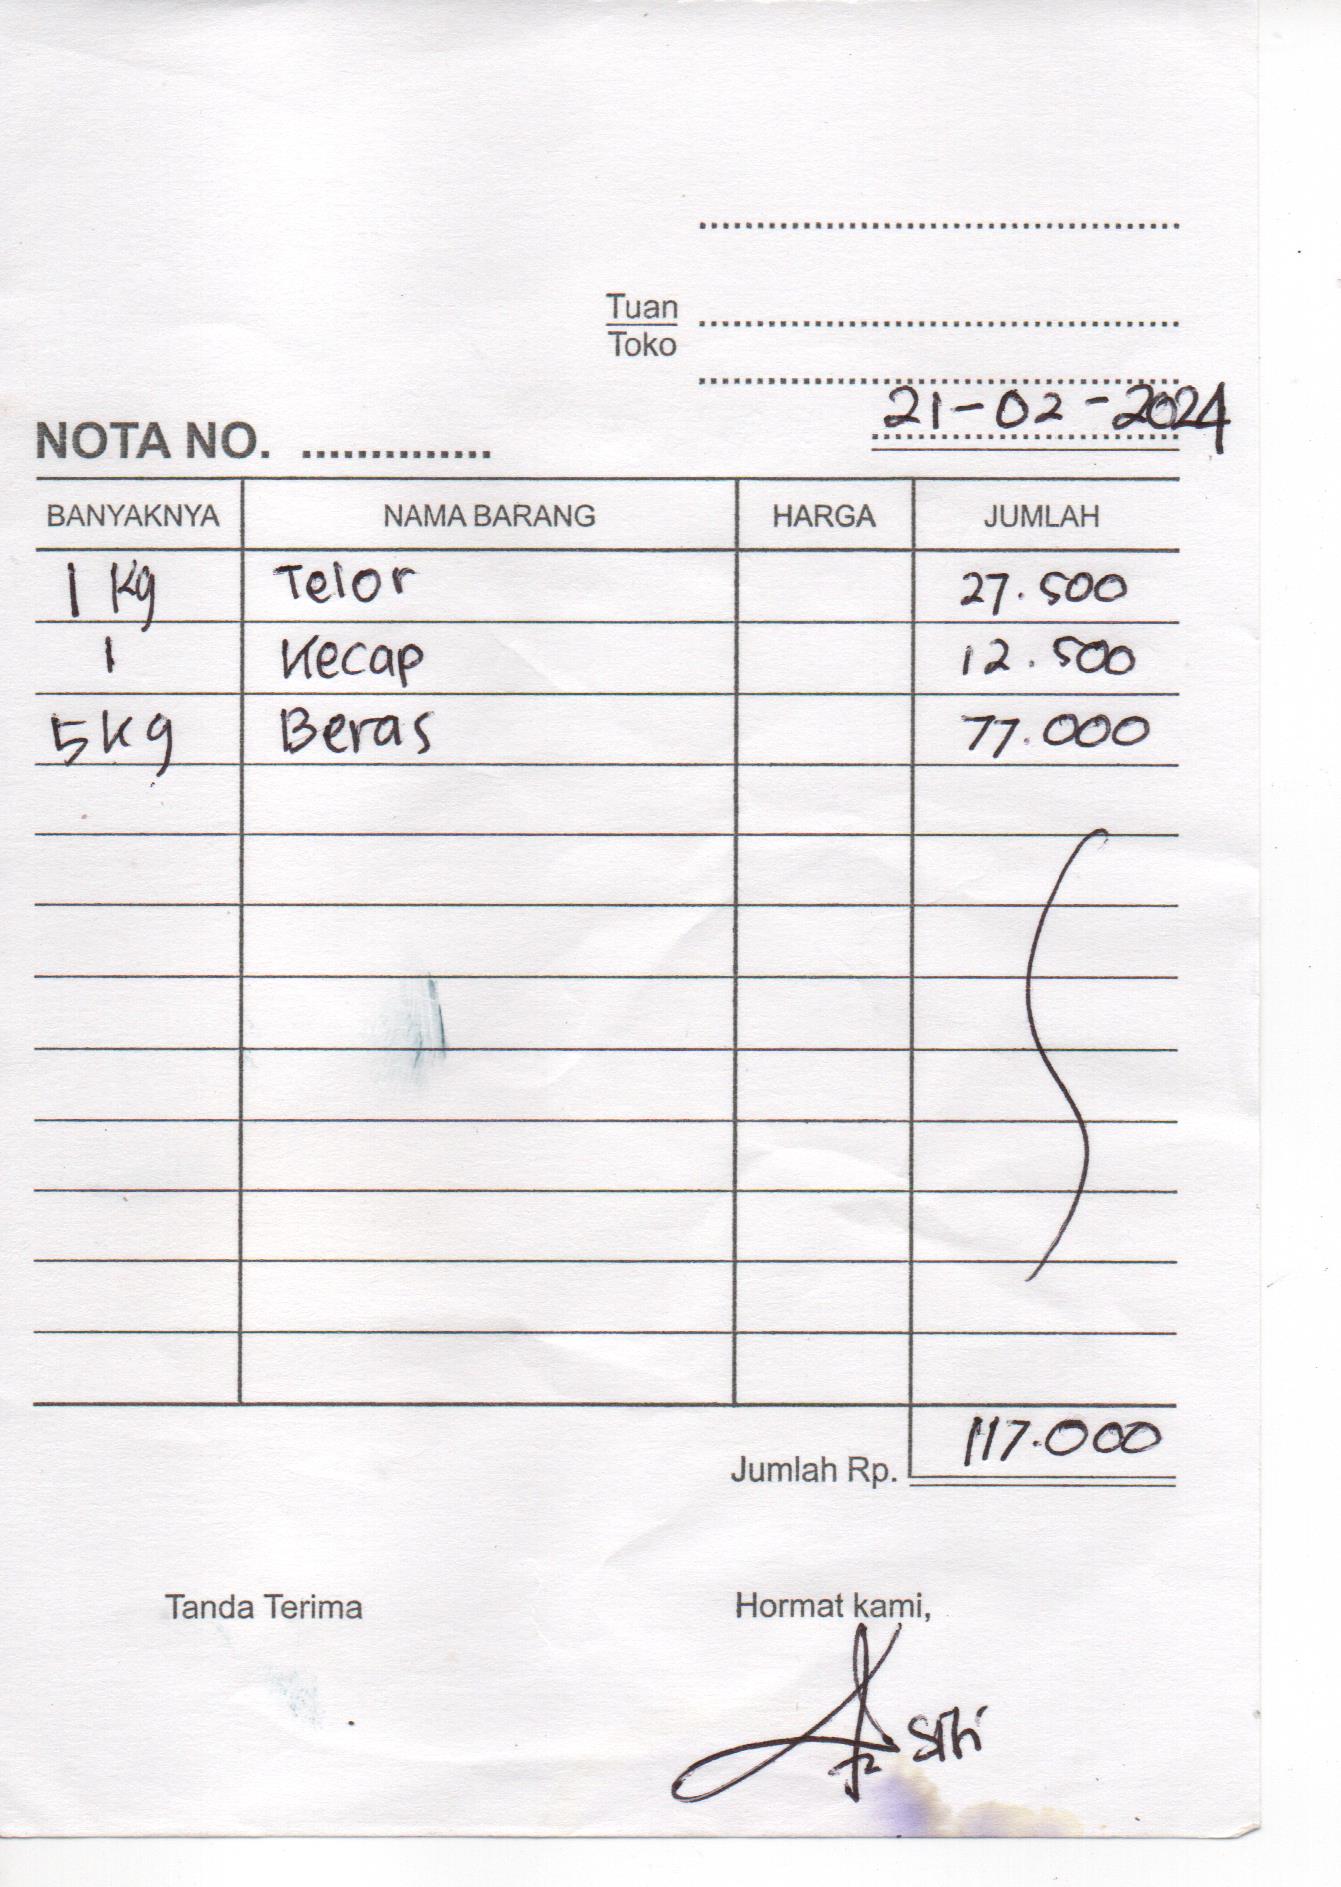 Tuan
Toko
21-02-2024
NOTA NO. ..............
BANYAKNYA NAMA BARANG HARGA JUMLAH
1 Kg Telor 27.500
1 Kecap 12.500
5 Kg Beras 77.000
Jumlah Rp. 117.000
Tanda Terima Hormat kami,
Siti